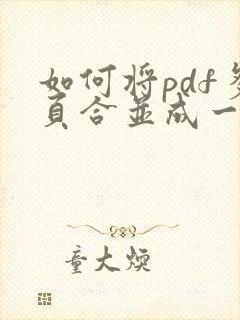 如何将pdf多
页合並成一
童大焕